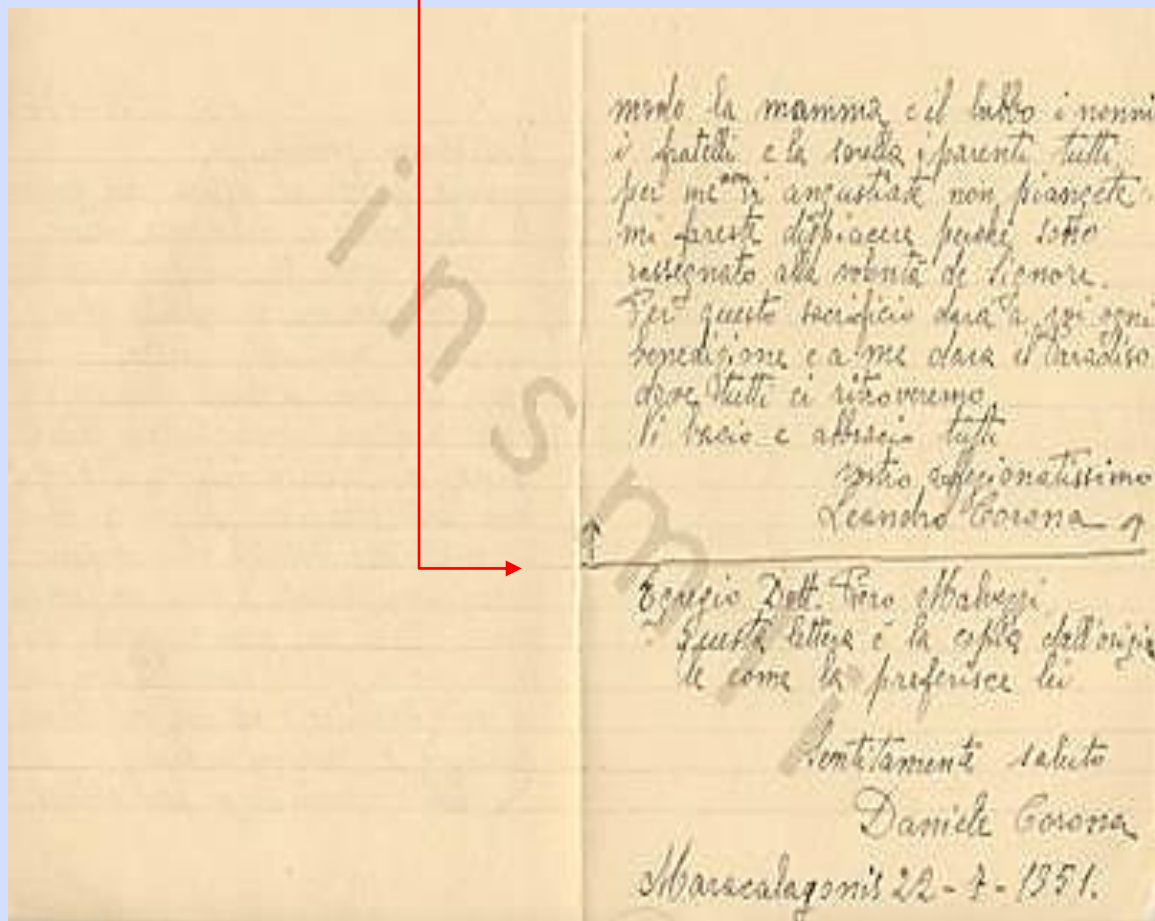 modo la mamma e il babbo i nonni
i fratelli e la sorella i parenti tutti
per me non vi angustiate non piangete
mi fareste dispiacere perché sono
rassegnato alla volontà de Signore.
Per questo sacrificio dara a voi ogni
benedizione e a me dara il Paradiso
dove tutti ci ritroveremo
Vi bacio e abbracio tutti
vostro affezionatissimo
Leandro Corona
Egregio Dott. Piero Malvezzi
Questa lettera è la copia dell'origia
le come la preferisce lei
Sentitamente saluto
Daniele Corona
Maracalagonis 22-7-1951.
insmli